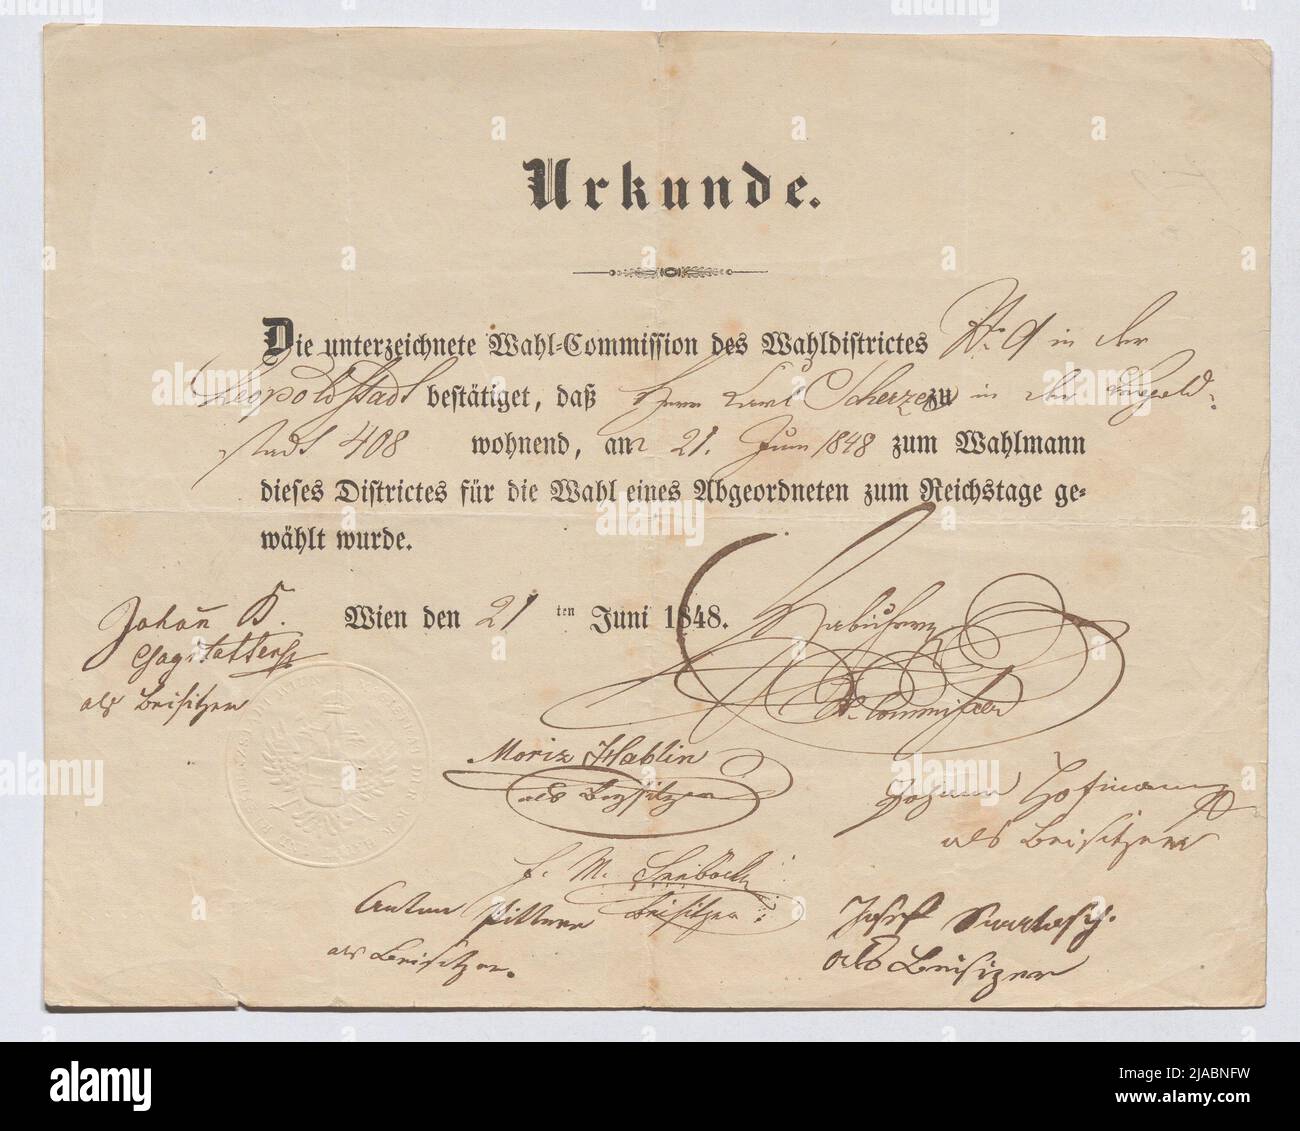 Urkunde.
Die unterzeichnete Wahl-Commission des Wahldistrictes No 9 in der
Leopoldstadt bestätiget, daß Herr Carl Scherzer zu in der Leopold-
stadt 408 wohnend, am 21. Juni 1848 zum Wahlmann
dieses Districtes für die Wahl eines Abgeordneten zum Reichstage ge-
wählt wurde.
Wien den 21 ten Juni 1848.
Johann
als Beisitzer
Moriz
als Beysitzer
Johann Hofmann
als Beisitzer
F. M.
Beisitzer
Anton
als Beisitzer.
Josef
als Beisizer
alamy
Image ID: 2JABNFW
www.alamy.com